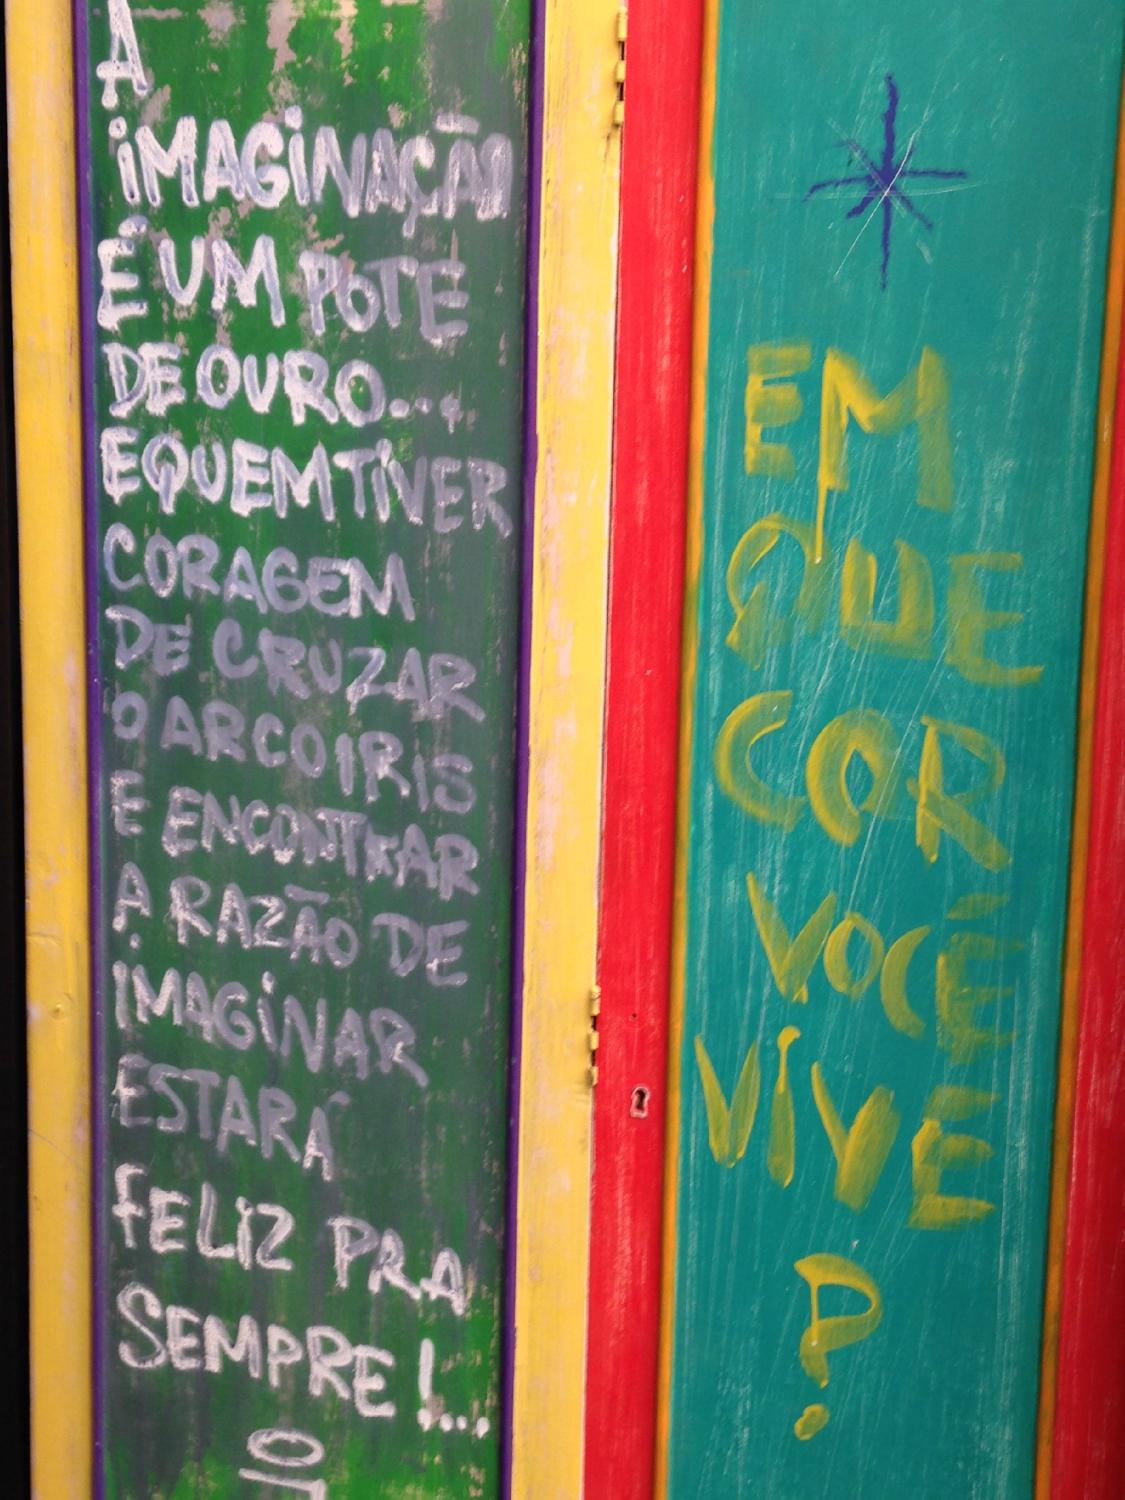 A
iMAGiNAÇÃO
É UM POTE
DE OURO...
E QUEM TiVER
CORAGEM
DE CRUZAR
O ARCOIRIS
E ENCONTRAR
A RAZÃO DE
iMAGiNAR
ESTARÁ
FELIZ PRA
SEMPRE!...
EM
QUE
COR
VOCÊ
ViVE
?